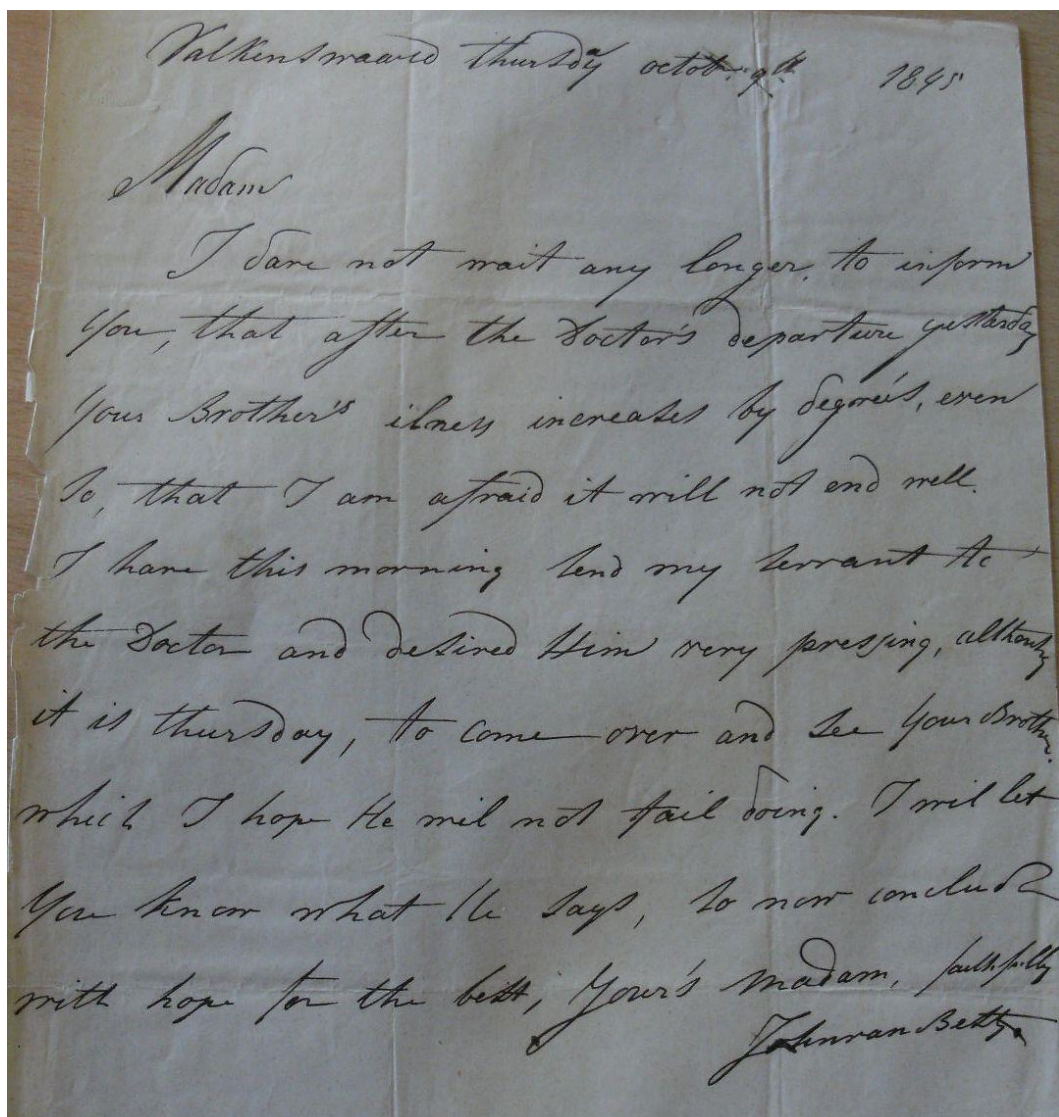 Valkenswaard thursday octob. 9th 1845
Madam
I dare not wait any longer, to inform
You, that after the Doctor's departure yesterday
Your Brother's ilness increases by degreés, even
So, that I am afraid it will not end well.
I have this morning send my servant to
the Doctor and desired Him very pressing, although
it is thursday, to come over and see Your Brother.
which I hope He wil not fail doing. I wil let
You know what He says, so now conclude
with hope for the best, Your's Madam, faithfully
John van Best